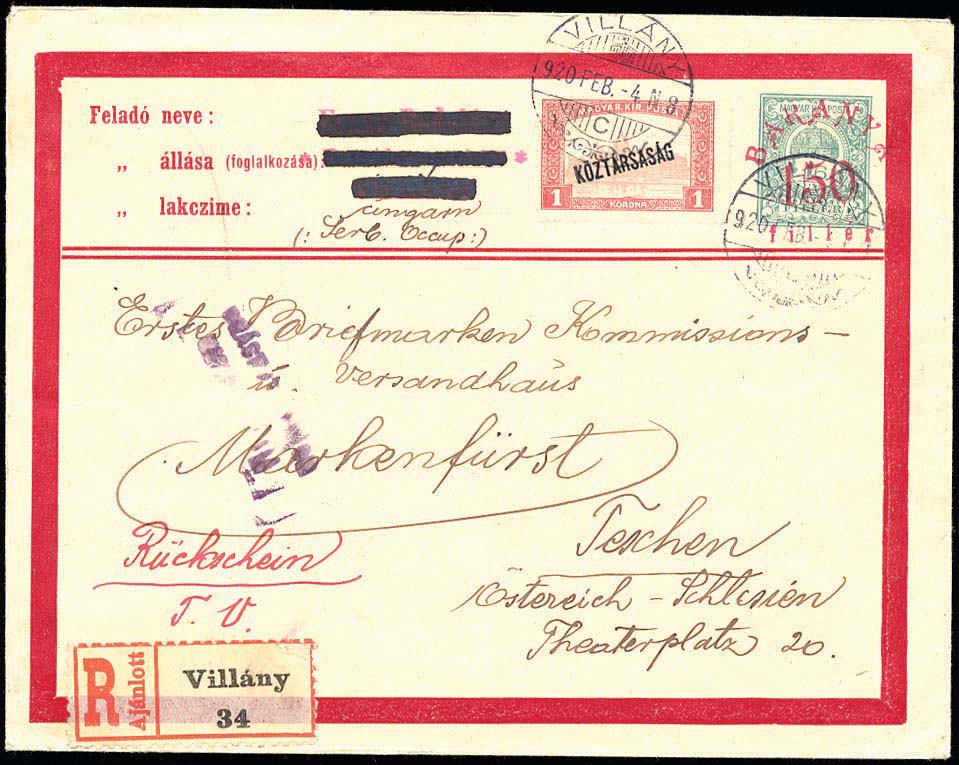 Feladó neve :
„ állása (foglalkozása)
„ lakczime :
Ungarn
(: Serb. Occup :)
VILLÁNY
920 FEB. -4 N 8
C
MAGYAR KIR. POSTA
KÖZTÁRSASÁG
1 KORONA 1
MAGYAR KIR. POSTA
BARANYA
150
fillér
VILLÁNY
920 FEB. -
Erstes Briefmarken Kommissions -
u. Versandhaus
Markenfürst
Teschen
Östereich - Schlesien
Theaterplatz 20.
Rückschein
T. V.
R
Ajánlott
Villány
34